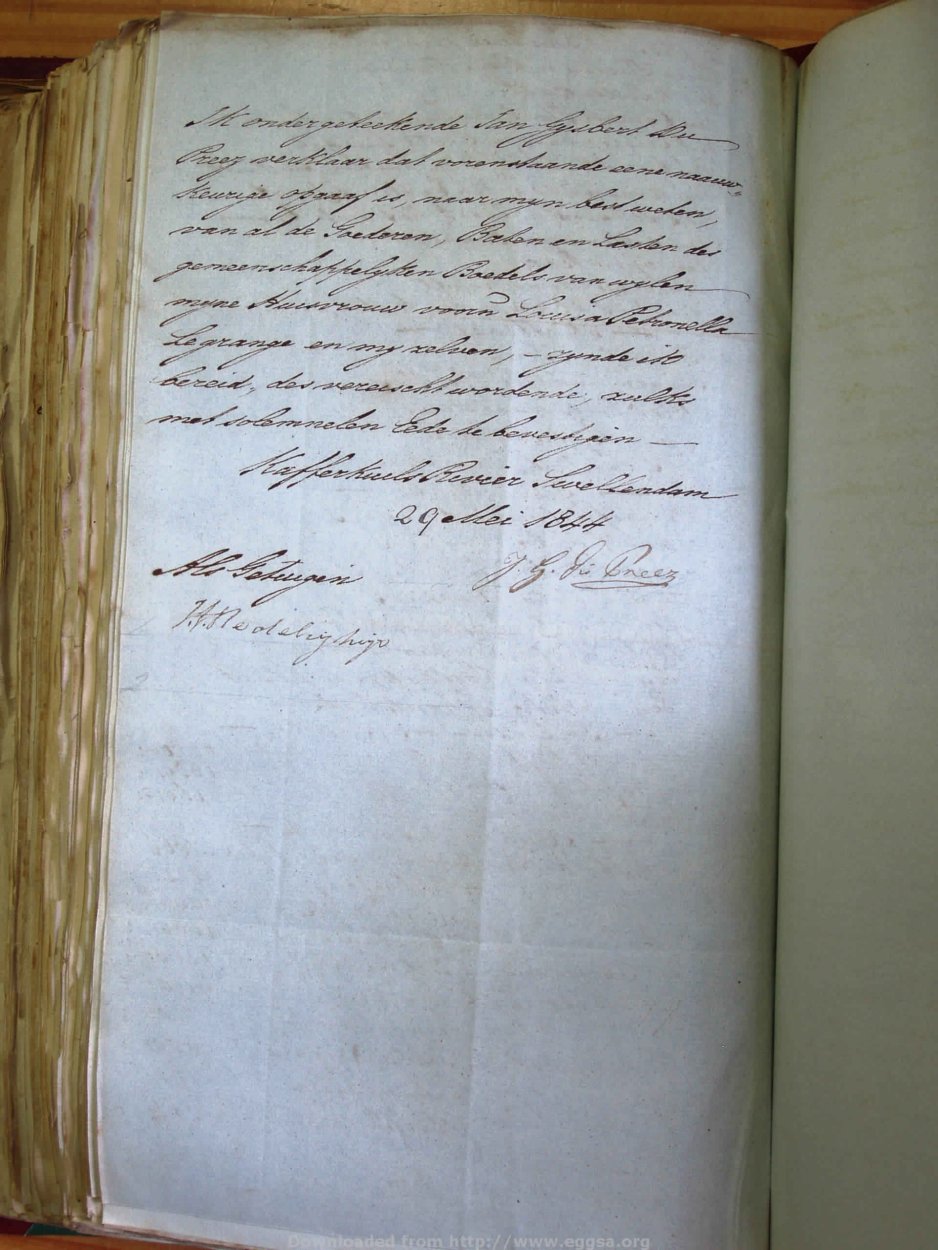 Ik ondergeteekende Jan Gysbert Du
Preez verklaar dat vorenstaande eene naauw„
keurige opgaaf is, naar myn best weten,
van al de Goederen, Baten en Lasten des
gemeenschappelyken Boedels van wylen
myne Huisvrouw voorn̄ Louisa Petronella
Legrange en my zelven, – zynde ik
bereid, des vereischt wordende, zulks
met solemnelen Eede te bevestigen —
Kafferkuils Revier Swellendam
29 Mei 1844
Als Getuigen
J. G. Du Preez
Downloaded from http://www.eggsa.org